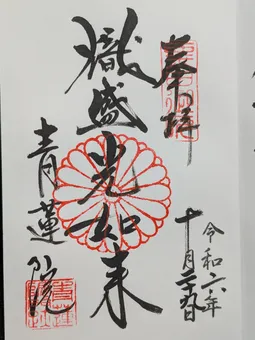 奉拝
熾盛光如来
青蓮院
令和六年
十月二十九日